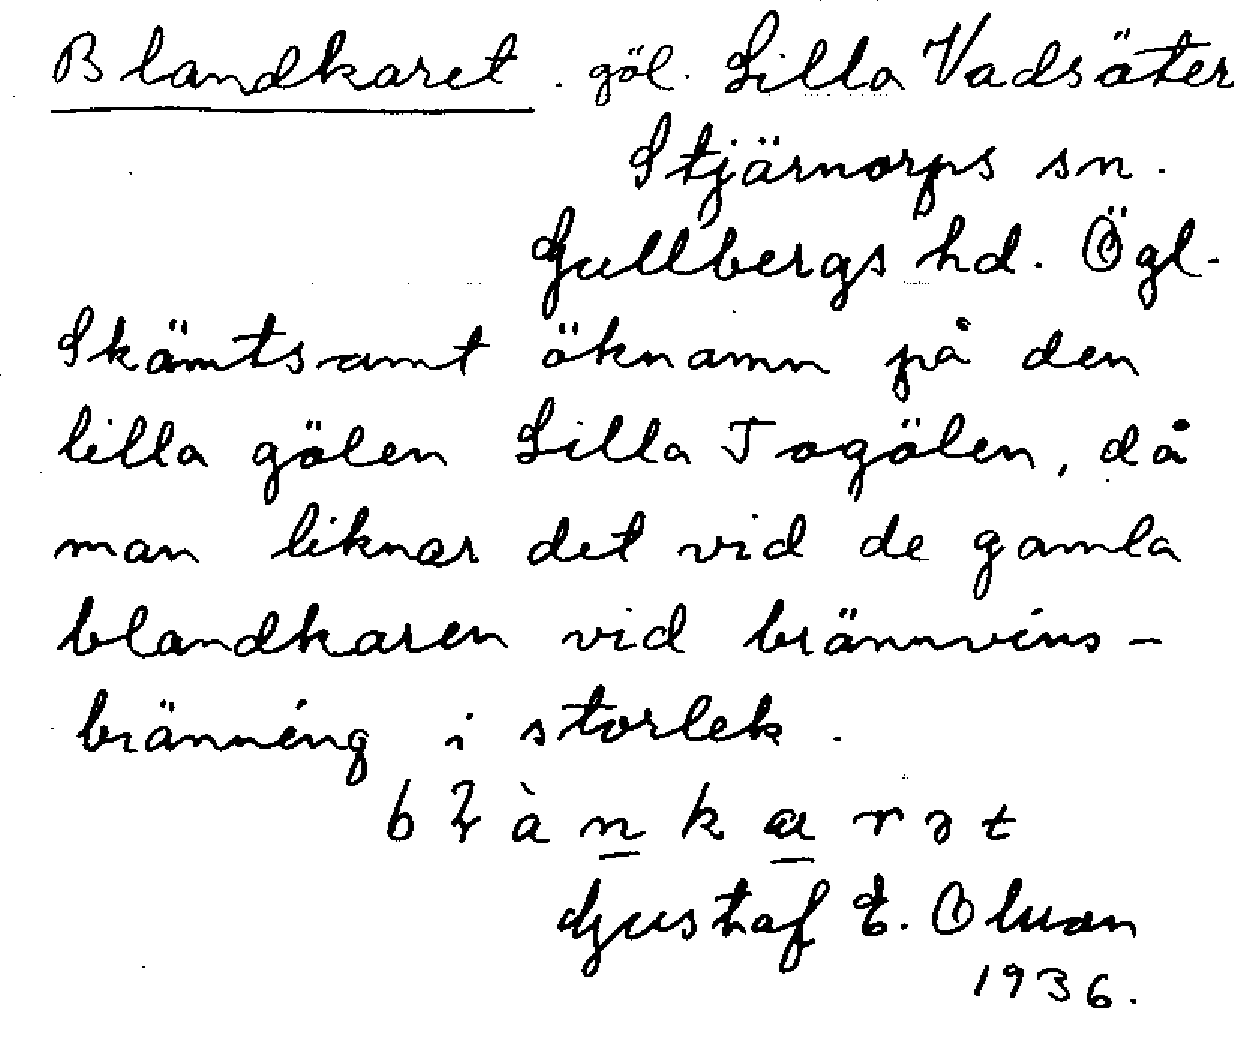 Blandkaret. göl. Lilla Vadsäter
Stjärnorps sn.
Gullbergs hd. Ögl.
Skämtsamt öknamn på den
lilla gölen Lilla Togölen, då
man liknar det vid de gamla
blandkaren vid brännvins-
bränning i storlek.
Gustaf E. Olsson
1936.